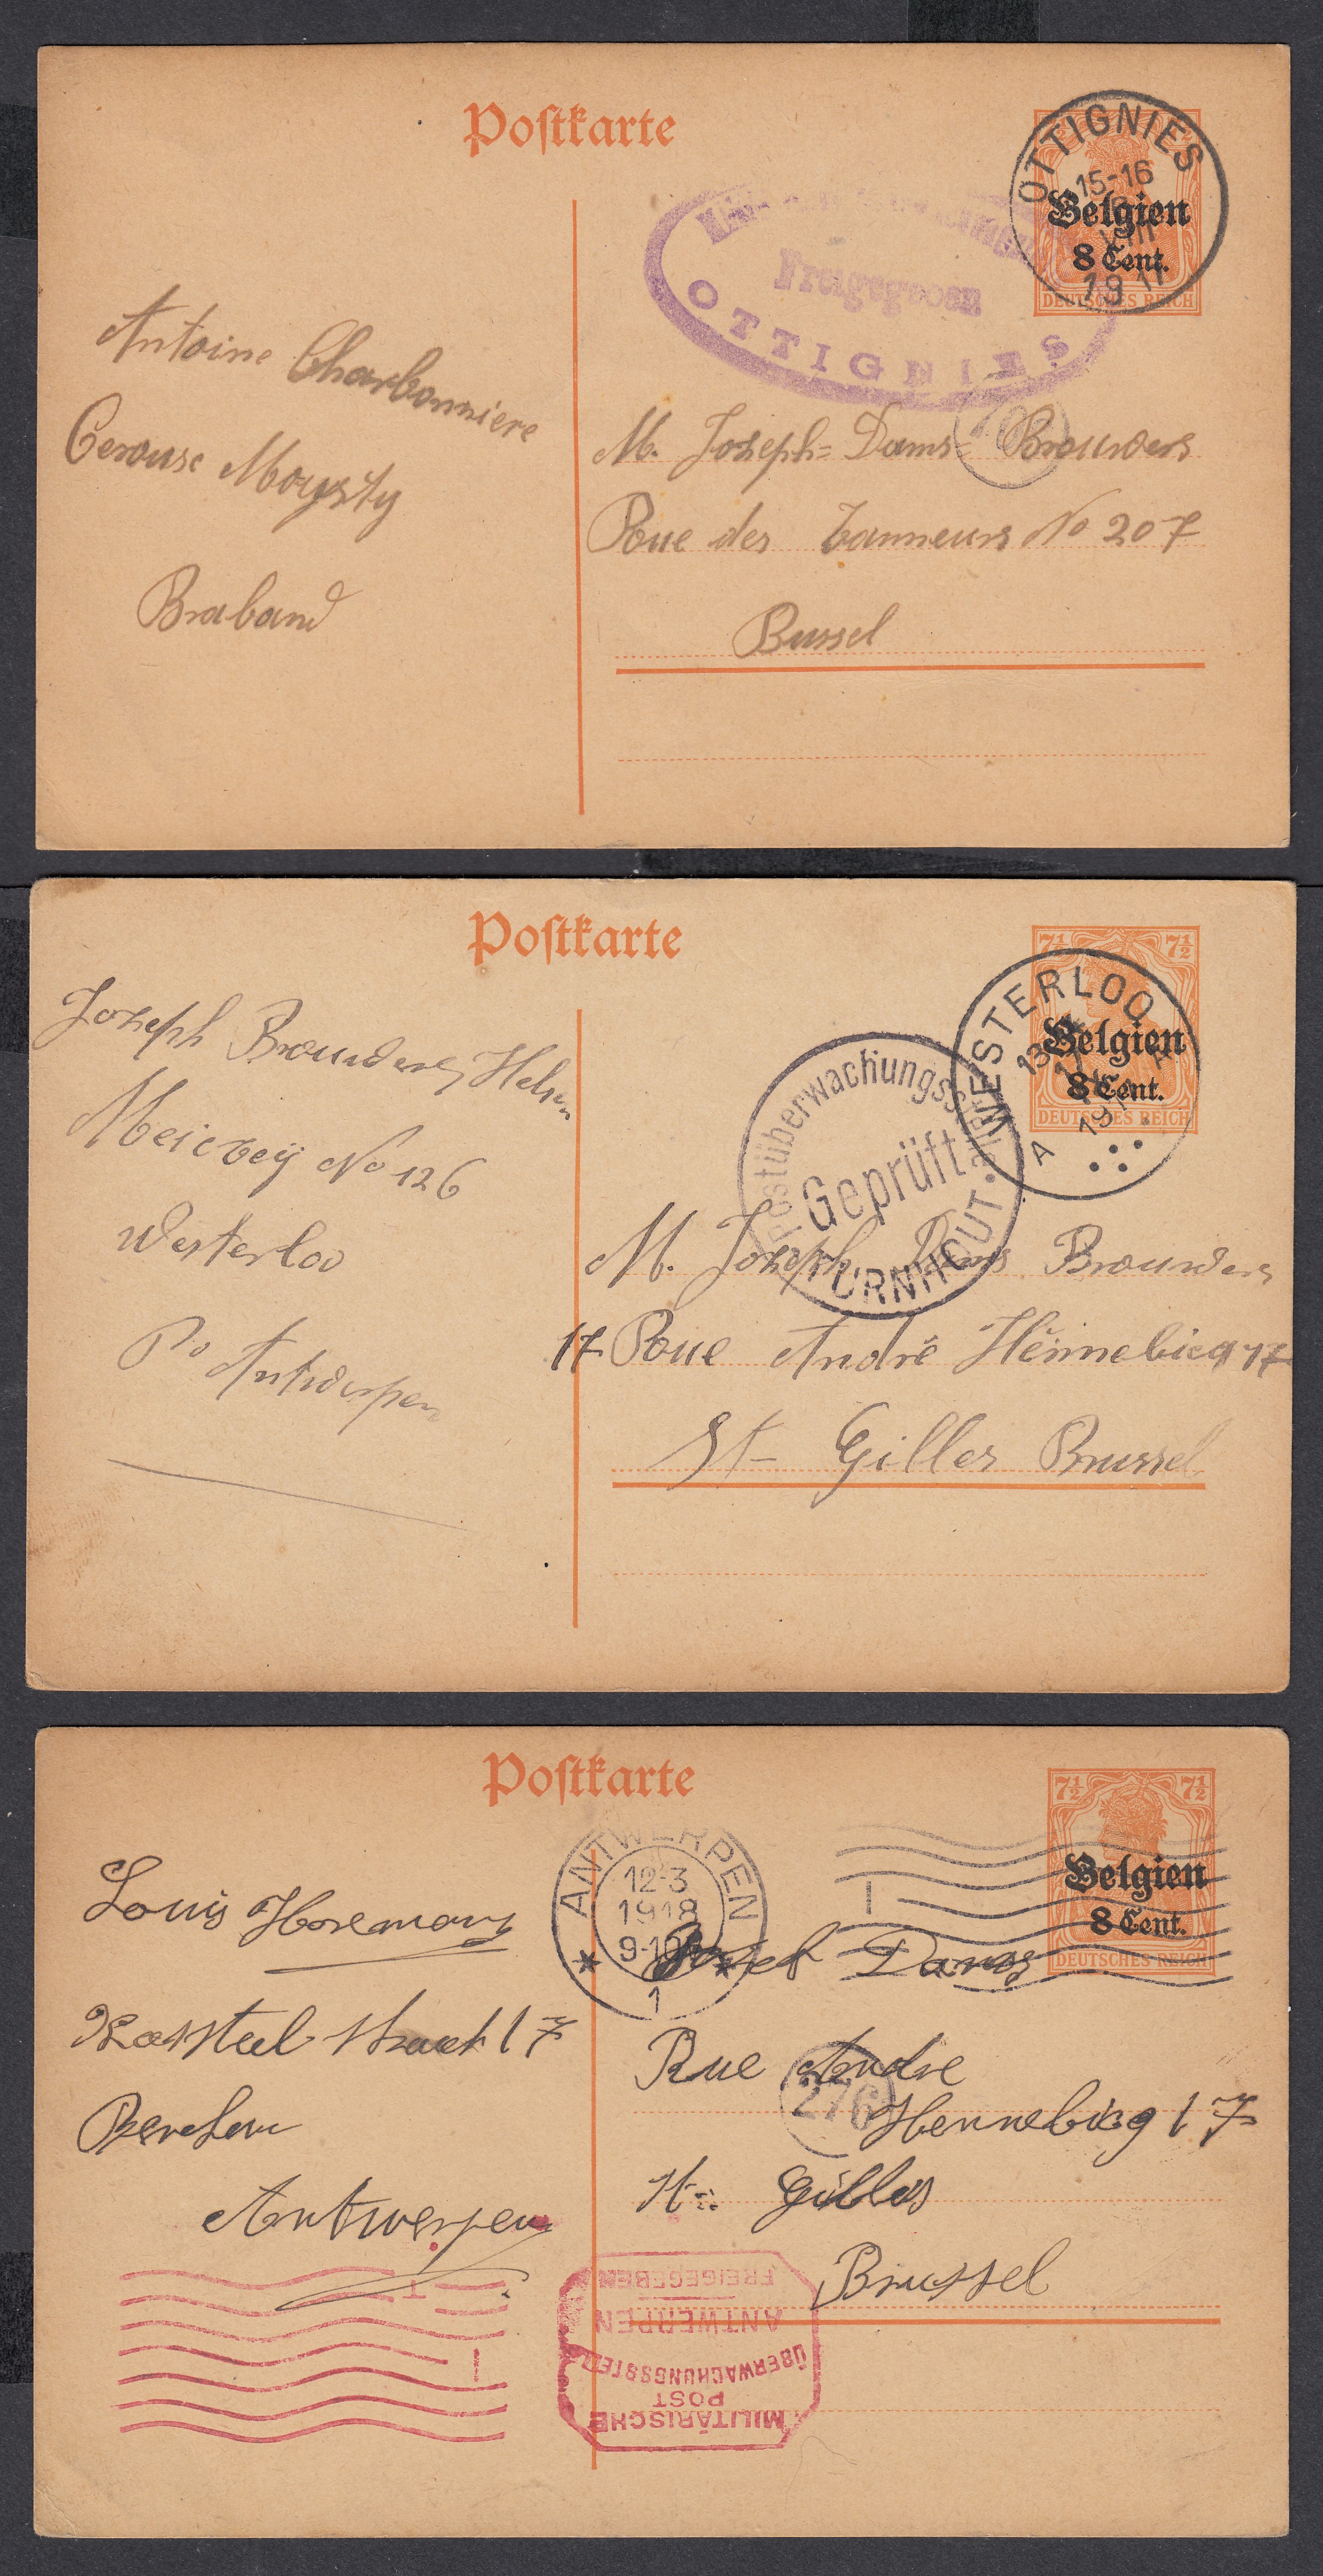 Postkarte
OTTIGNIES
15-16
VIII
1917
Belgien
8 Cent.
DEUTSCHES REICH
Freigegeben
OTTIGNIES
Antoine Charbonniere
Cerouse Moysty
Braband
M. Joseph= Dams= Brouwers
Roue des Tanneurs No 207
Bussel
Postkarte
7½ 7½
WESTERLOO
Belgien
8 Cent.
DEUTSCHES REICH
A
Postüberwachungsstelle
Geprüft
TURNHOUT
Joseph Brouwers
No 126
Westerloo
Po Antwerpen
M. Joseph Dams Brouwers
17 Roue André Hénnebicq 17
St- Gilles Brussel
Postkarte
7½ 7½
Belgien
8 Cent.
DEUTSCHES REICH
ANTWERPEN
12-3
1918
1
Louis Horemans
Kasteel straat 17
Berchem
Antwerpen
Josef Dams
Rue Andre
276
Hennebicq 17
St: Gilles
Brussel
MILITÄRISCHE
POST
ÜBERWACHUNGSSTELLE
ANTWERPEN
FREIGEGEBEN